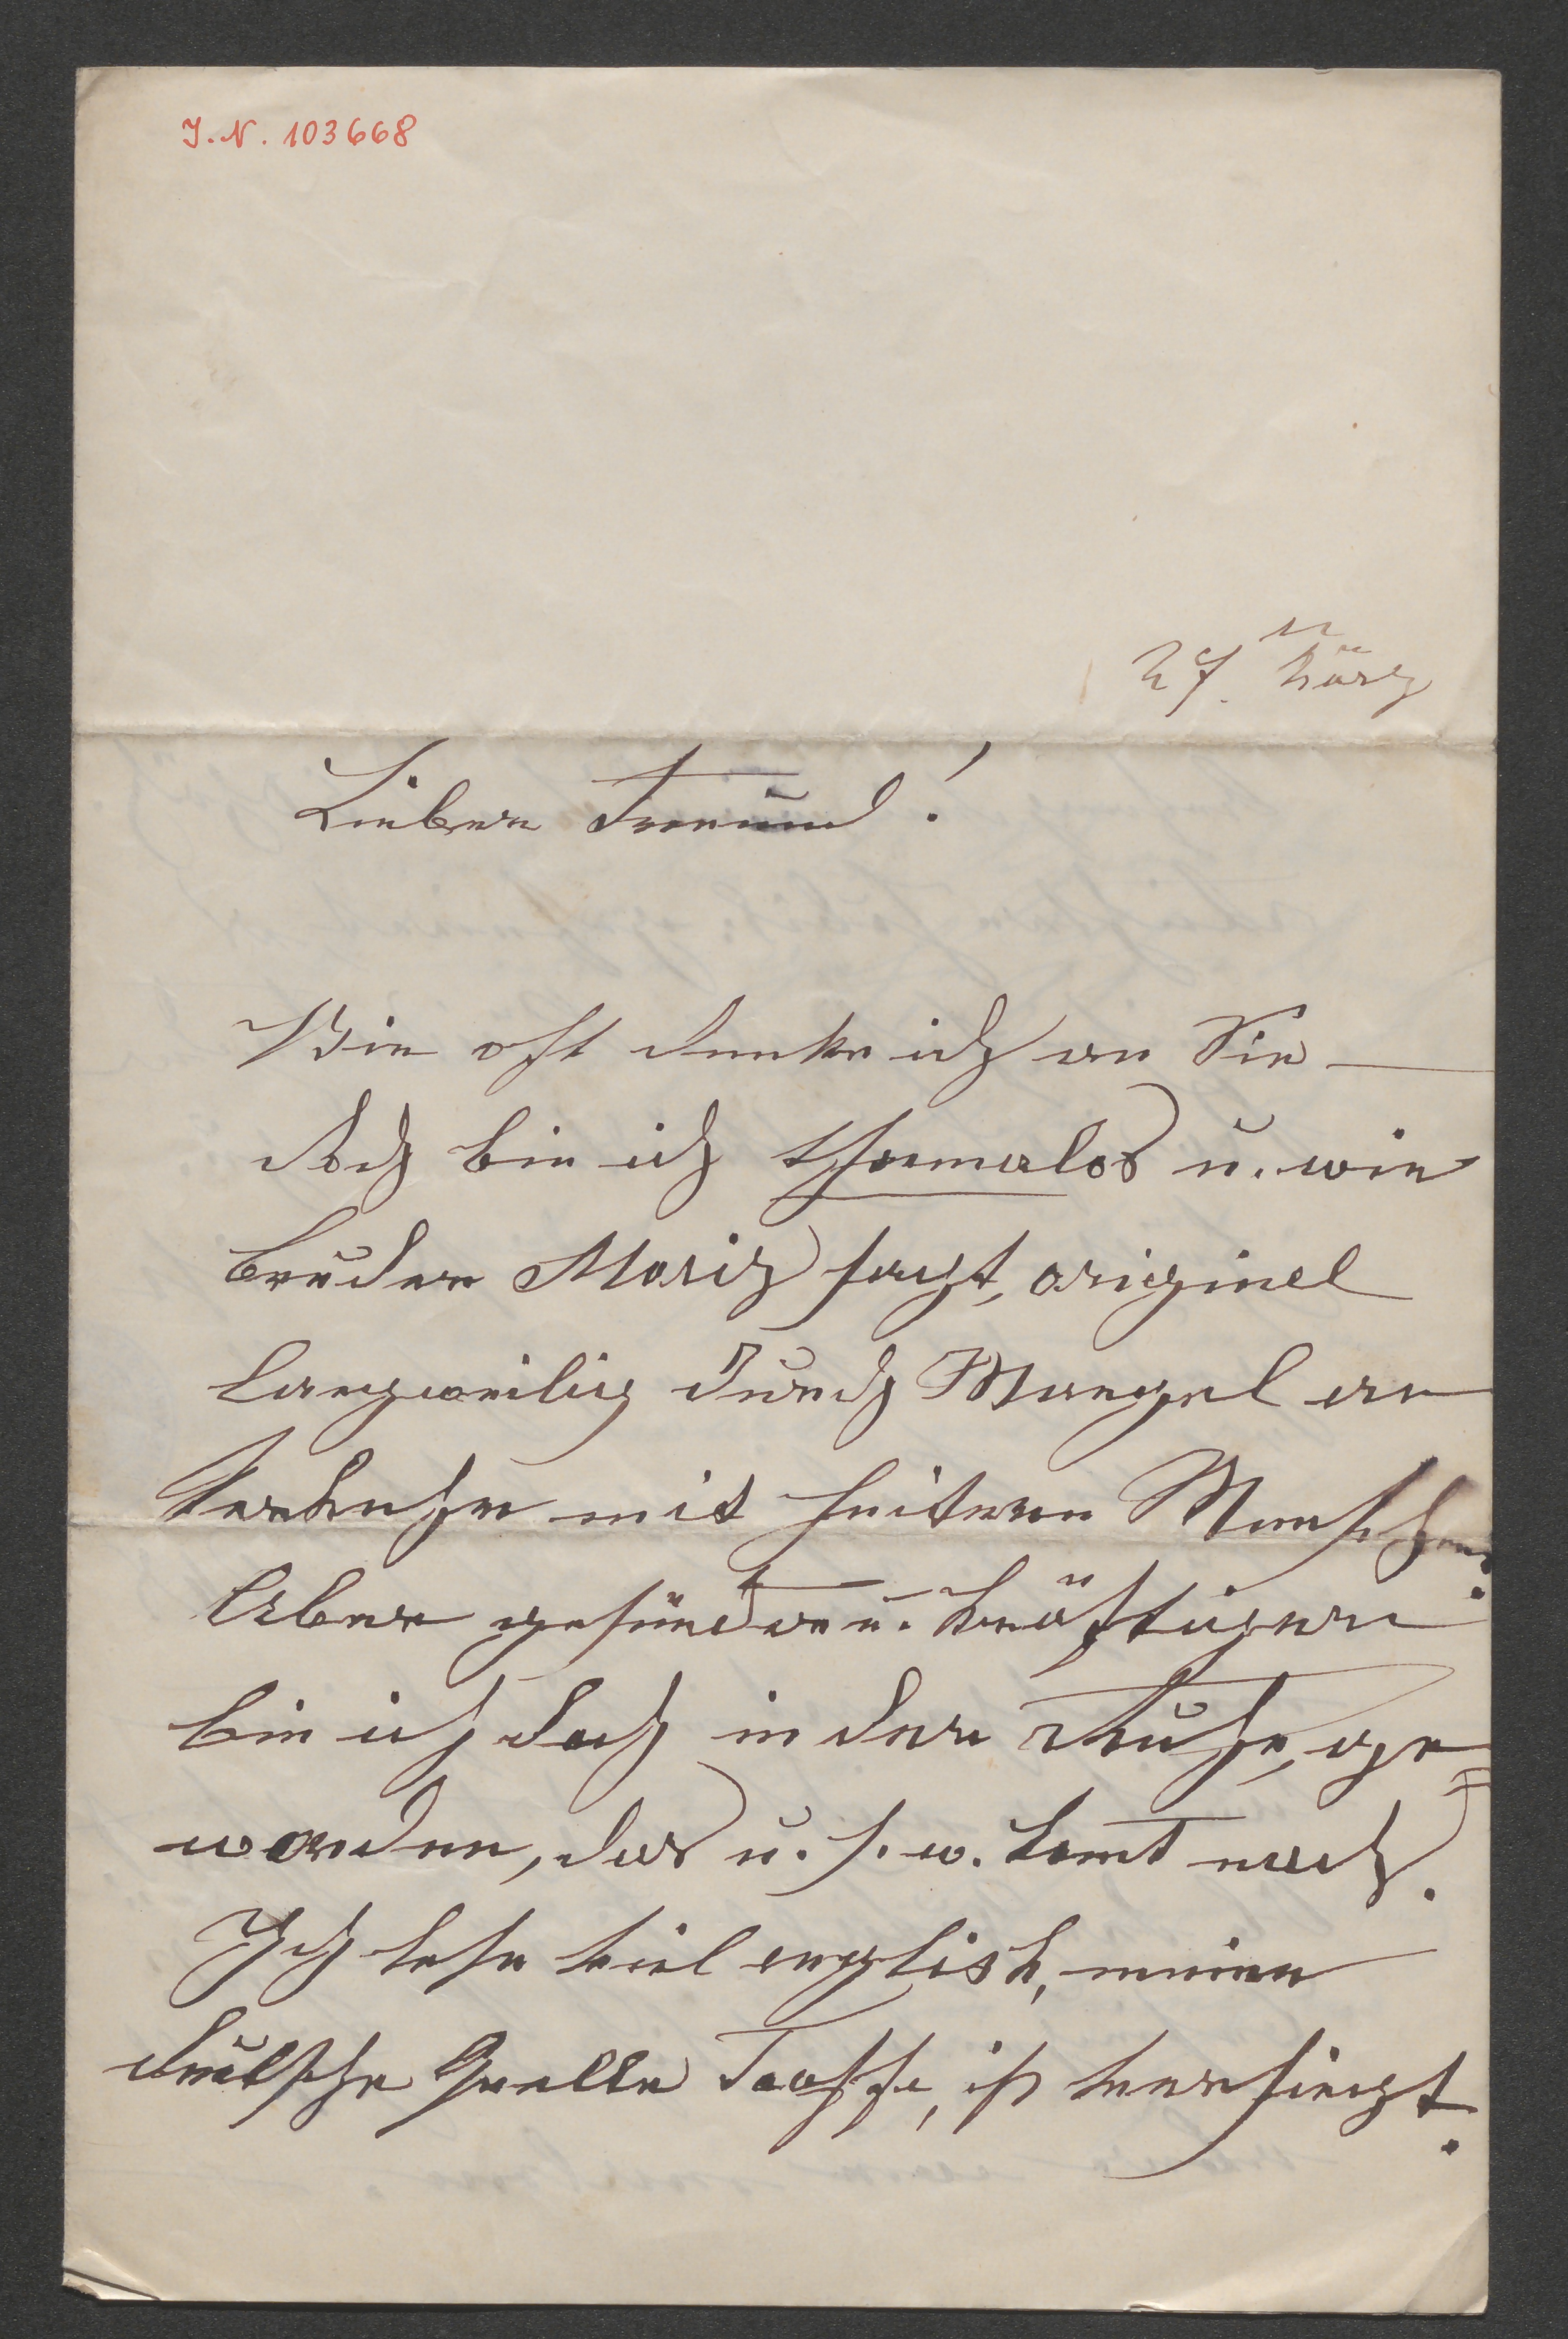 J. N. 103668
27. März
Lieber Freund!
Wie oft denke ich an Sie —
doch bin ich themalos u. wie
Bruder Moriz sagt, originel
langweilig durch Mangel an
Verkehr mit heitern Menschen.
Aber gesünder u. kräftiger
bin ich doch in der Ruhe, ge=
worden, das u. s. w. komt nach.
Ich lese viel english, meine
deutsche Quelle Tasse, ist versiegt.